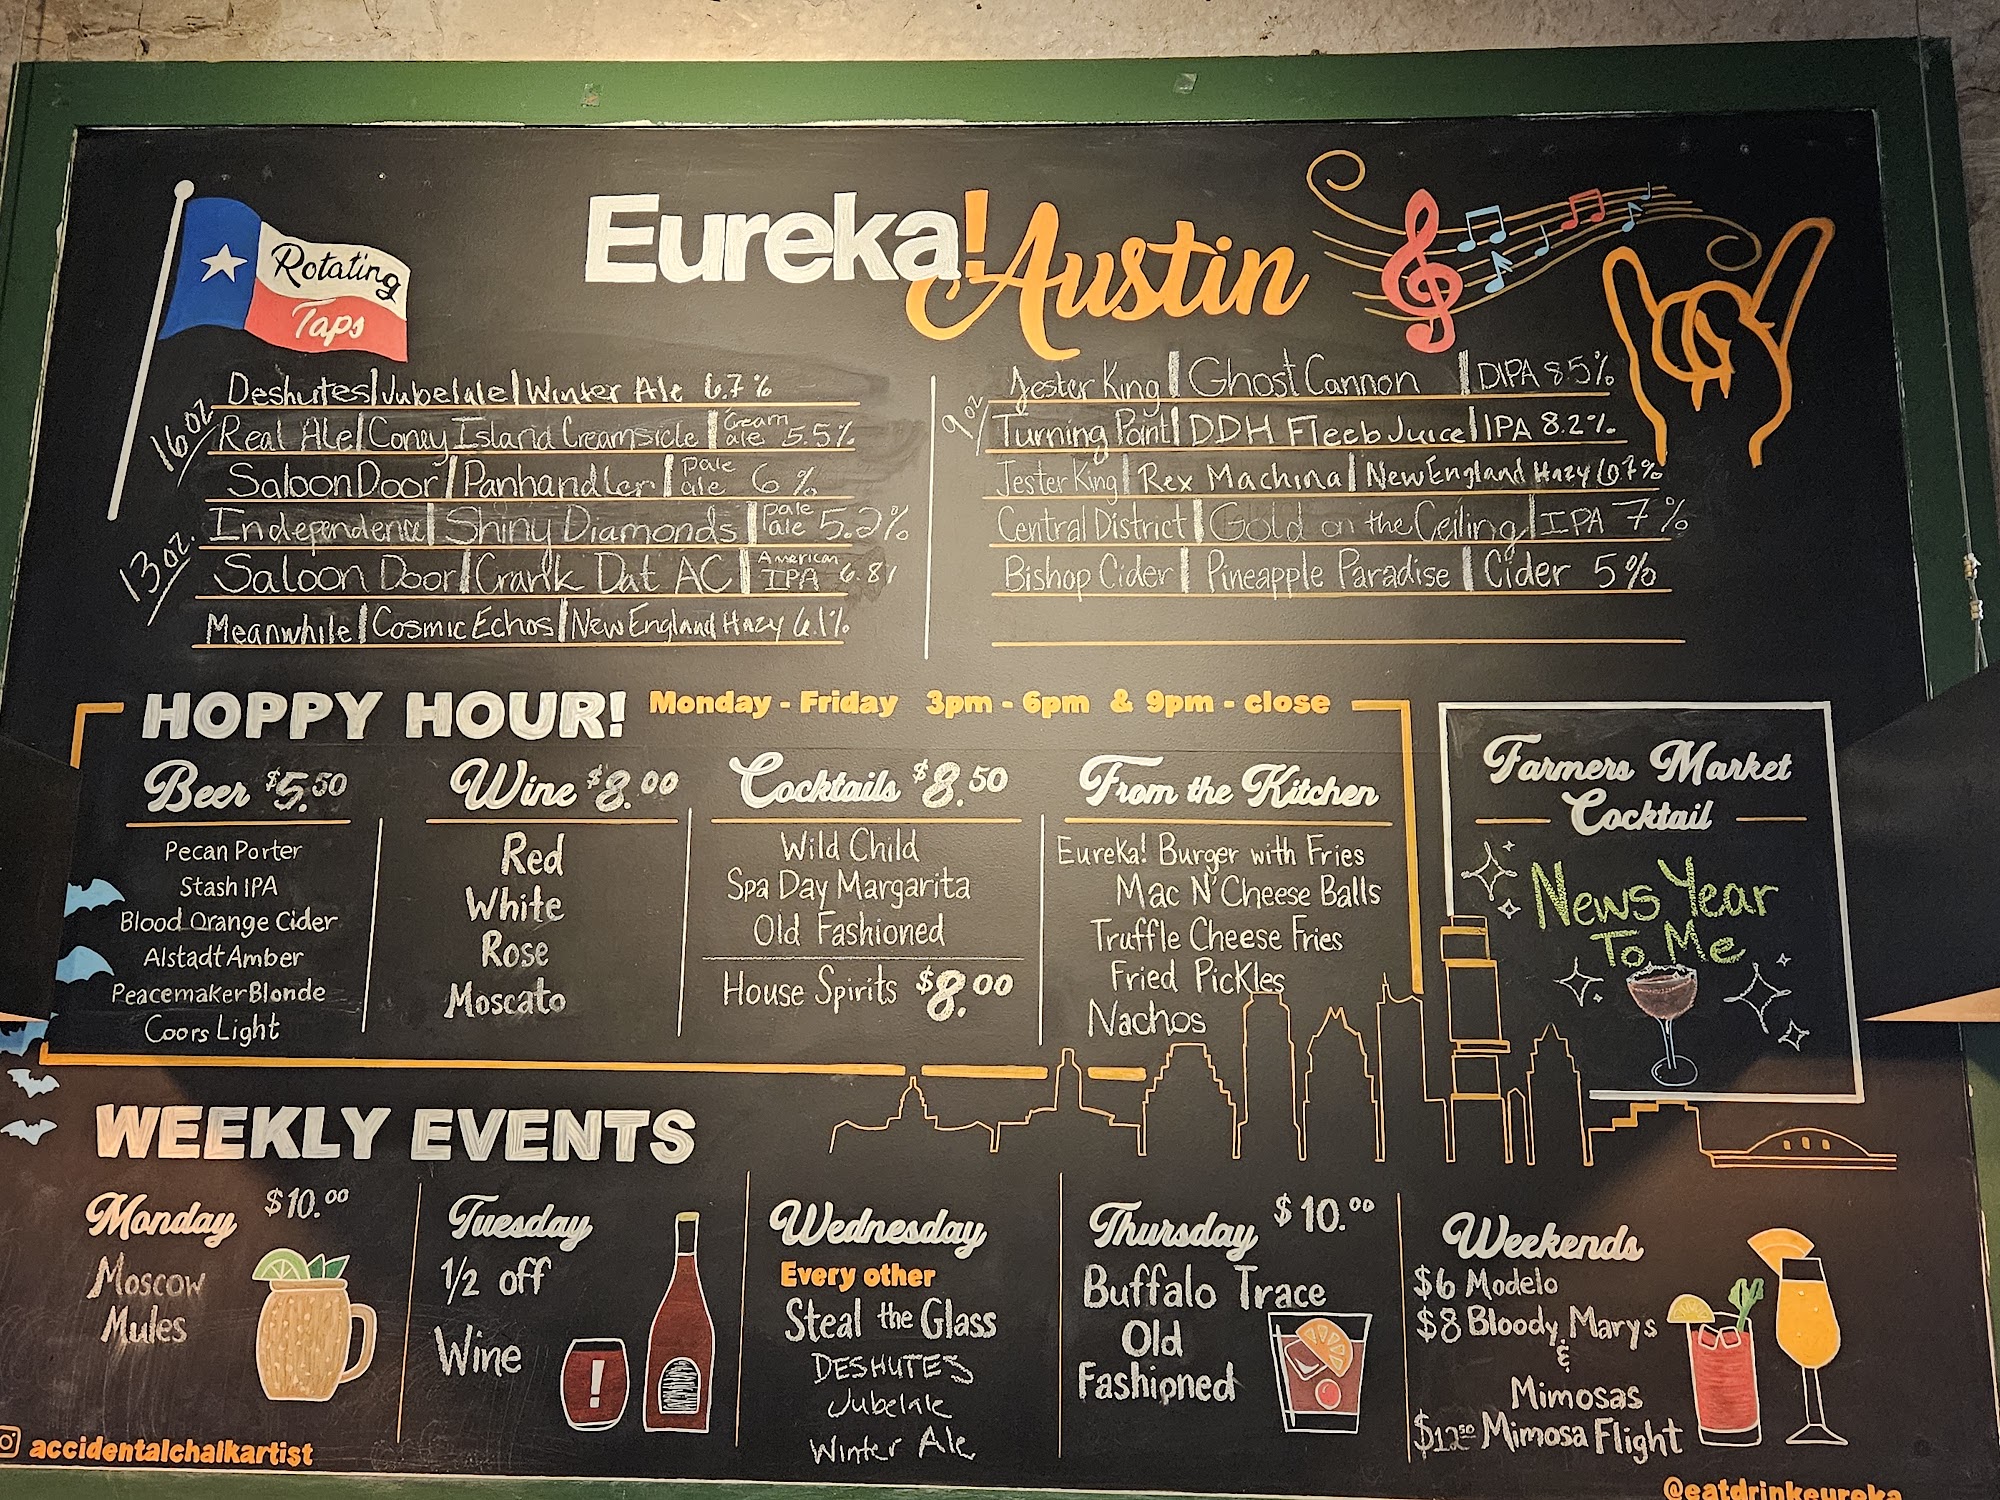 Eureka! Austin
Rotating
Taps
16 oz
Deshutes | Jubelale | Winter Ale 6.7%
Real Ale | Coney Island Creamsicle | Cream ale 5.5%
Saloon Door | Panhandler | pale ale 6%
13 oz.
Independence | Shiny Diamonds | pale ale 5.2%
Saloon Door | Crank Dat AC | American IPA 6.81
Meanwhile | Cosmic Echos | New England Hazy 6.1%
9 oz
Jester King | Ghost Cannon | DIPA 8.5%
Turning Point | DDH Fleeb Juice | IPA 8.2%
Jester King | Rex Machina | New England Hazy 6.7%
Central District | Gold on the Ceiling | IPA 7%
Bishop Cider | Pineapple Paradise | Cider 5%
HOPPY HOUR! Monday - Friday 3pm - 6pm & 9pm - close
Beer $5.50
Pecan Porter
Stash IPA
Blood Orange Cider
Alstadt Amber
Peacemaker Blonde
Coors Light
Wine $8.00
Red
White
Rose
Moscato
Cocktails $8.50
Wild Child
Spa Day Margarita
Old Fashioned
House Spirits $8.00
From the Kitchen
Eureka! Burger with Fries
Mac N' Cheese Balls
Truffle Cheese Fries
Fried Pickles
Nachos
Farmers Market
Cocktail
News Year
To Me
WEEKLY EVENTS
Monday $10.00
Moscow
Mules
Tuesday
1/2 off
Wine
!
Wednesday
Every other
Steal the Glass
DESHUTES
Jubelale
Winter Ale
Thursday $10.00
Buffalo Trace
Old
Fashioned
Weekends
$6 Modelo
$8 Bloody Marys
&
Mimosas
$12.50 Mimosa Flight
accidentalchalkartist
@eatdrinkeureka